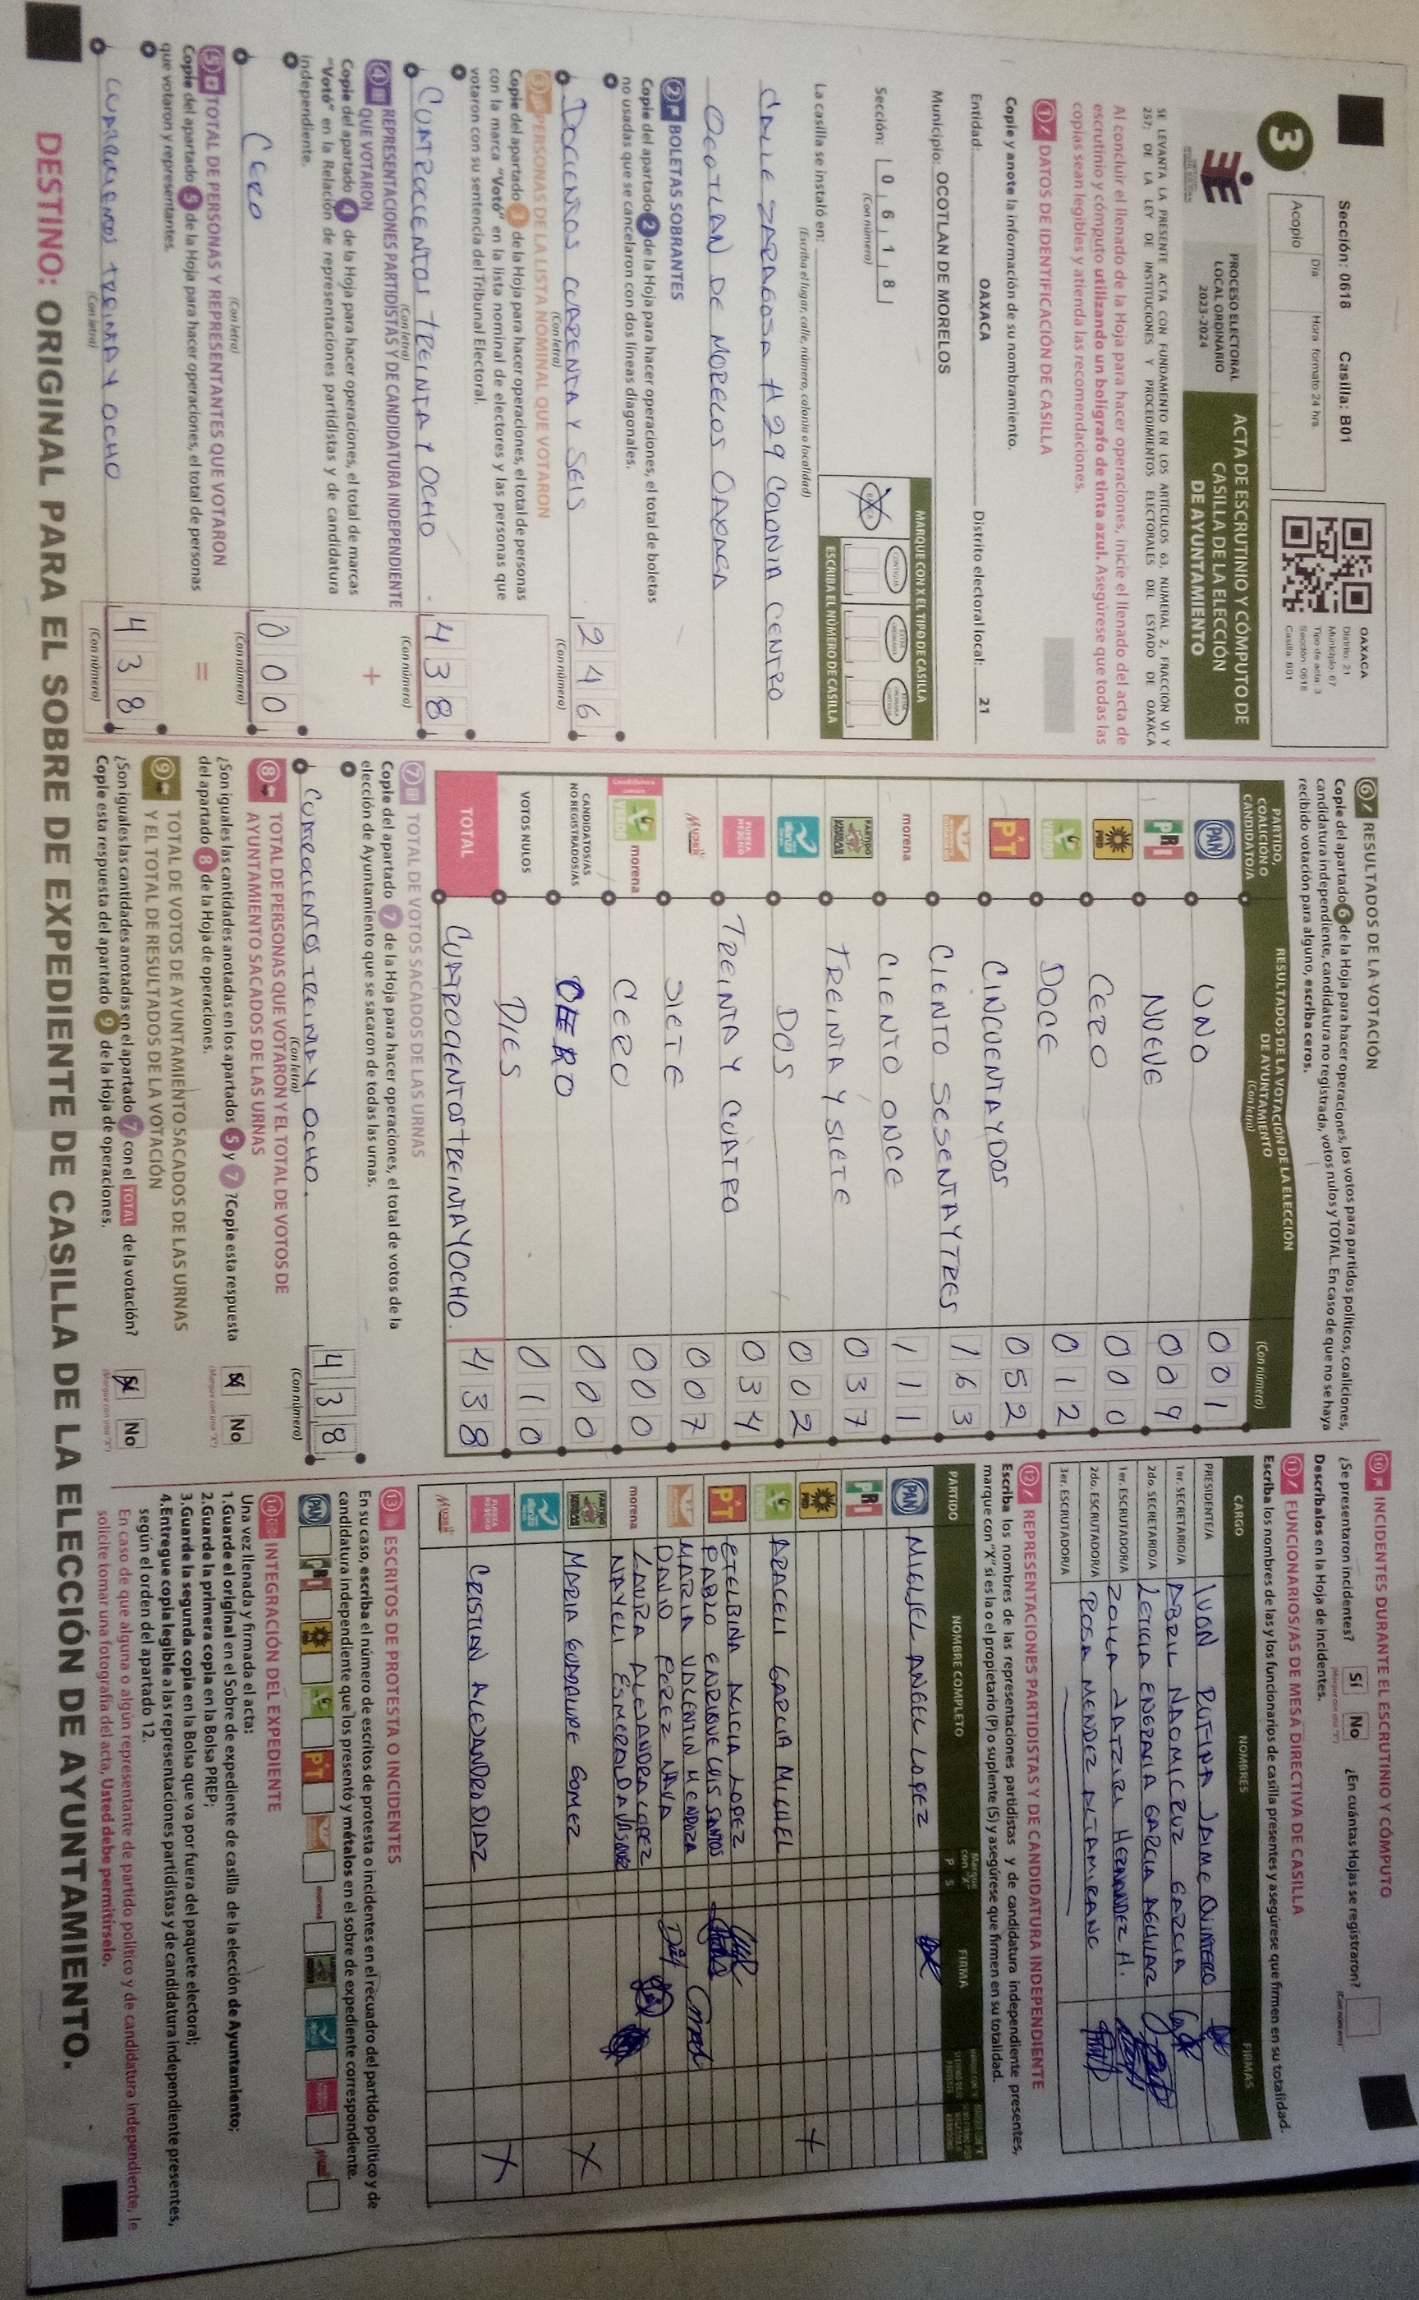 Sección: 0618 Casilla: B01
3
Acopio
Día
Hora formato 24 hrs
OAXACA
Distrito: 21
Municipio: 67
Tipo de acta: 3
Sección: 0618
Casilla: B01
PROCESO ELECTORAL
LOCAL ORDINARIO
2023-2024
ACTA DE ESCRUTINIO Y CÓMPUTO DE
CASILLA DE LA ELECCIÓN
DE AYUNTAMIENTO
SE LEVANTA LA PRESENTE ACTA CON FUNDAMENTO EN LOS ARTÍCULOS 63, NUMERAL 2, FRACCIÓN VI Y
257; DE LA LEY DE INSTITUCIONES Y PROCEDIMIENTOS ELECTORALES DEL ESTADO DE OAXACA
Al concluir el llenado de la Hoja para hacer operaciones, inicie el llenado del acta de
escrutinio y cómputo utilizando un bolígrafo de tinta azul. Asegúrese que todas las
copias sean legibles y atienda las recomendaciones.
1 DATOS DE IDENTIFICACIÓN DE CASILLA
Copie y anote la información de su nombramiento.
Entidad: OAXACA Distrito electoral local: 21
Municipio: OCOTLAN DE MORELOS
Sección: 0 6 1 8
(Con número)
MARQUE CON X EL TIPO DE CASILLA
ESCRIBA EL NÚMERO DE CASILLA
La casilla se instaló en:
(Escriba el lugar, calle, número, colonia o localidad)
CALLE ZARAGOSA # 29 COLONIA CENTRO
OCOTLAN DE MORELOS OAXACA
2 BOLETAS SOBRANTES
Copie del apartado 2 de la Hoja para hacer operaciones, el total de boletas
no usadas que se cancelaron con dos líneas diagonales.
DOCIENTOS CUARENTA Y SEIS 246
(Con letra) (Con número)
3 PERSONAS DE LA LISTA NOMINAL QUE VOTARON
Copie del apartado 3 de la Hoja para hacer operaciones, el total de personas
con la marca "Votó" en la lista nominal de electores y las personas que
votaron con su sentencia del Tribunal Electoral.
CUATROCIENTOS TREINTA Y OCHO 438
(Con letra) (Con número)
4 REPRESENTACIONES PARTIDISTAS Y DE CANDIDATURA INDEPENDIENTE
QUE VOTARON
+
Copie del apartado 4 de la Hoja para hacer operaciones, el total de marcas
"Votó" en la Relación de representaciones partidistas y de candidatura
independiente.
CERO 000
(Con letra) (Con número)
5 TOTAL DE PERSONAS Y REPRESENTANTES QUE VOTARON
=
Copie del apartado 5 de la Hoja para hacer operaciones, el total de personas
que votaron y representantes.
CUATROCIENTOS TREINTA Y OCHO 438
(Con letra) (Con número)
6 RESULTADOS DE LA VOTACIÓN
Copie del apartado 6 de la Hoja para hacer operaciones, los votos para partidos políticos, coaliciones,
candidatura independiente, candidatura no registrada, votos nulos y TOTAL. En caso de que no se haya
recibido votación para alguno, escriba ceros.
PARTIDO,
COALICIÓN O
CANDIDATO/A
RESULTADOS DE LA VOTACIÓN DE LA ELECCIÓN
DE AYUNTAMIENTO
(Con letra)
(Con número)
PAN UNO 001
PRI NUEVE 009
PRD CERO 000
VERDE DOCE 012
PT CINCUENTA Y DOS 052
CIENTO SESENTA Y TRES 163
morena CIENTO ONCE 111
TREINTA Y SIETE 037
DOS 002
TREINTA Y CUATRO 034
SIETE 007
VERDE morena CERO 000
CANDIDATOS/AS
NO REGISTRADOS/AS
CERO 000
VOTOS NULOS DIES 010
TOTAL CUATROCIENTOS TREINTA Y OCHO. 438
7 TOTAL DE VOTOS SACADOS DE LAS URNAS
Copie del apartado 7 de la Hoja para hacer operaciones, el total de votos de la
elección de Ayuntamiento que se sacaron de todas las urnas.
CUATROCIENTOS TREINTA Y OCHO. 438
(Con letra) (Con número)
8 TOTAL DE PERSONAS QUE VOTARON Y EL TOTAL DE VOTOS DE
AYUNTAMIENTO SACADOS DE LAS URNAS
¿Son iguales las cantidades anotadas en los apartados 5 y 7 ? Copie esta respuesta
del apartado 8 de la Hoja de operaciones.
Sí No
9 TOTAL DE VOTOS DE AYUNTAMIENTO SACADOS DE LAS URNAS
Y EL TOTAL DE RESULTADOS DE LA VOTACIÓN
¿Son iguales las cantidades anotadas en el apartado 7 con el TOTAL de la votación?
Copie esta respuesta del apartado 9 de la Hoja de operaciones.
Sí No
10 INCIDENTES DURANTE EL ESCRUTINIO Y CÓMPUTO
¿Se presentaron incidentes? Sí No ¿En cuántas Hojas se registraron?
Descríbalos en la Hoja de incidentes.
11 FUNCIONARIOS/AS DE MESA DIRECTIVA DE CASILLA
Escriba los nombres de las y los funcionarios de casilla presentes y asegúrese que firmen en su totalidad.
CARGO NOMBRES FIRMAS
PRESIDENTE/A IVON RUFINA JAIME QUINTERO
1er. SECRETARIO/A ABRIL NAOMI CRUZ GARCIA
2do. SECRETARIO/A LETICIA ENGRACIA GARCIA AGUILAR
1er. ESCRUTADOR/A ZOILA JATZIRI HERNANDEZ H.
2do. ESCRUTADOR/A ROSA MENDEZ ALTAMIRANO
3er. ESCRUTADOR/A
12 REPRESENTACIONES PARTIDISTAS Y DE CANDIDATURA INDEPENDIENTE
Escriba los nombres de las representaciones partidistas y de candidatura independiente presentes,
marque con "X" si es la o el propietario (P) o suplente (S) y asegúrese que firmen en su totalidad.
PARTIDO NOMBRE COMPLETO Marque con "X" P S FIRMA
PAN MIGUEL ANGEL LOPEZ
PRI
PRD
VERDE ARACELI GARCIA MIGUEL
PT ETELBINA ALICIA LOPEZ
PABLO ENRIQUE LUIS SANTOS
MARIA VALENTIN MENDOZA
DAVID PEREZ NAVA
morena LAURA ALEJANDRA LOPEZ
NAYELI ESMERALDA VASQUEZ
MARIA GUADALUPE GOMEZ
CRISTIAN ALEJANDRO DIAZ
13 ESCRITOS DE PROTESTA O INCIDENTES
En su caso, escriba el número de escritos de protesta o incidentes en el recuadro del partido político y de
candidatura independiente que los presentó y métalos en el sobre de expediente correspondiente.
PAN PRI PRD VERDE PT morena
14 INTEGRACIÓN DEL EXPEDIENTE
Una vez llenada y firmada el acta:
1.Guarde el original en el Sobre de expediente de casilla de la elección de Ayuntamiento;
2.Guarde la primera copia en la Bolsa PREP;
3.Guarde la segunda copia en la Bolsa que va por fuera del paquete electoral;
4.Entregue copia legible a las representaciones partidistas y de candidatura independiente presentes,
según el orden del apartado 12.
En caso de que alguna o algún representante de partido político y de candidatura independiente, le
solicite tomar una fotografía del acta, Usted debe permitírselo.
DESTINO: ORIGINAL PARA EL SOBRE DE EXPEDIENTE DE CASILLA DE LA ELECCIÓN DE AYUNTAMIENTO.